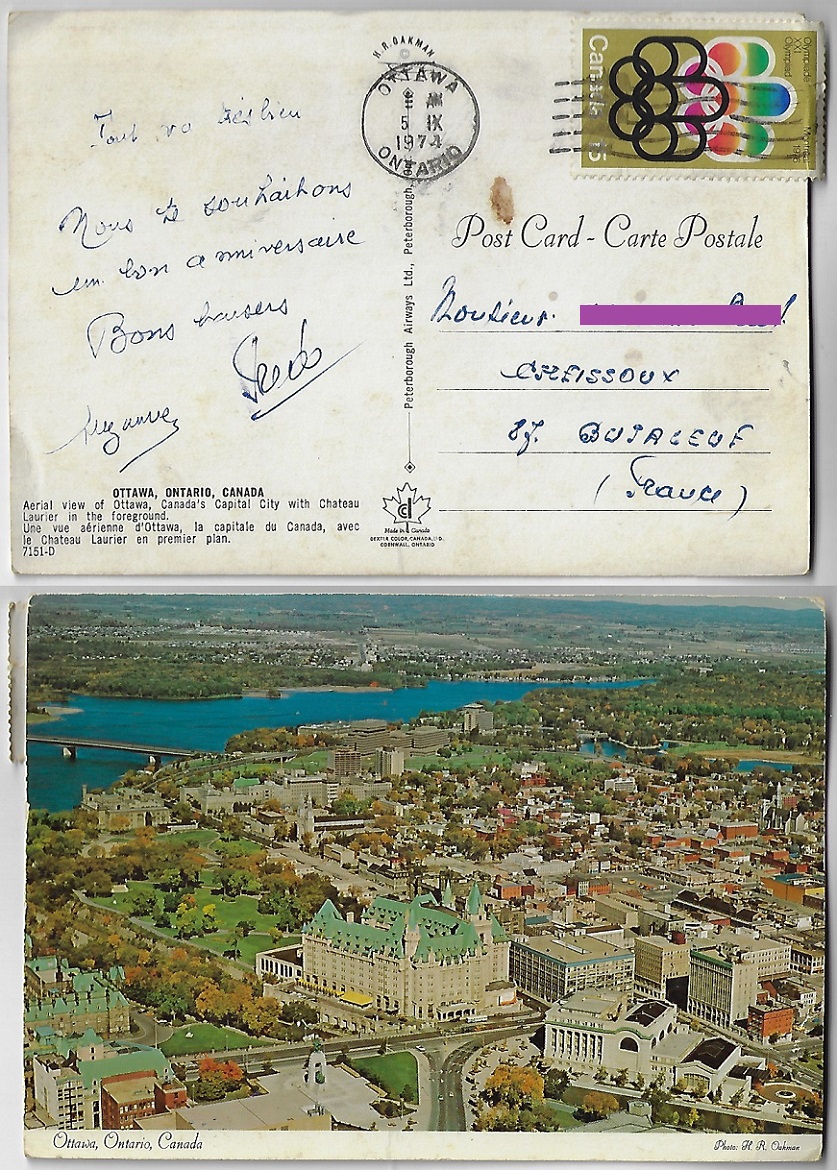 Tout va très bien
Nous te souhaitons
un bon anniversaire
Bons baisers
Suzanne
OTTAWA, ONTARIO, CANADA
Aerial view of Ottawa, Canada's Capital City with Chateau
Laurier in the foreground.
Une vue aérienne d'Ottawa, la capitale du Canada, avec
le Chateau Laurier en premier plan.
7151-D
H. R. OAKMAN
Peterborough Airways Ltd., Peterborough,
OTTAWA
AM
5 IX
1974
ONTARIO
Canada 15
Olympiade
XXI
Olympiad
Montréal
1976
Post Card - Carte Postale
Monsieur
CHEISSOUX
87. BUJALEUF
(France)
Made in Canada
DEXTER COLOR, CANADA, LTD.
CORNWALL, ONTARIO
Ottawa, Ontario, Canada
Photo: H. R. Oakman